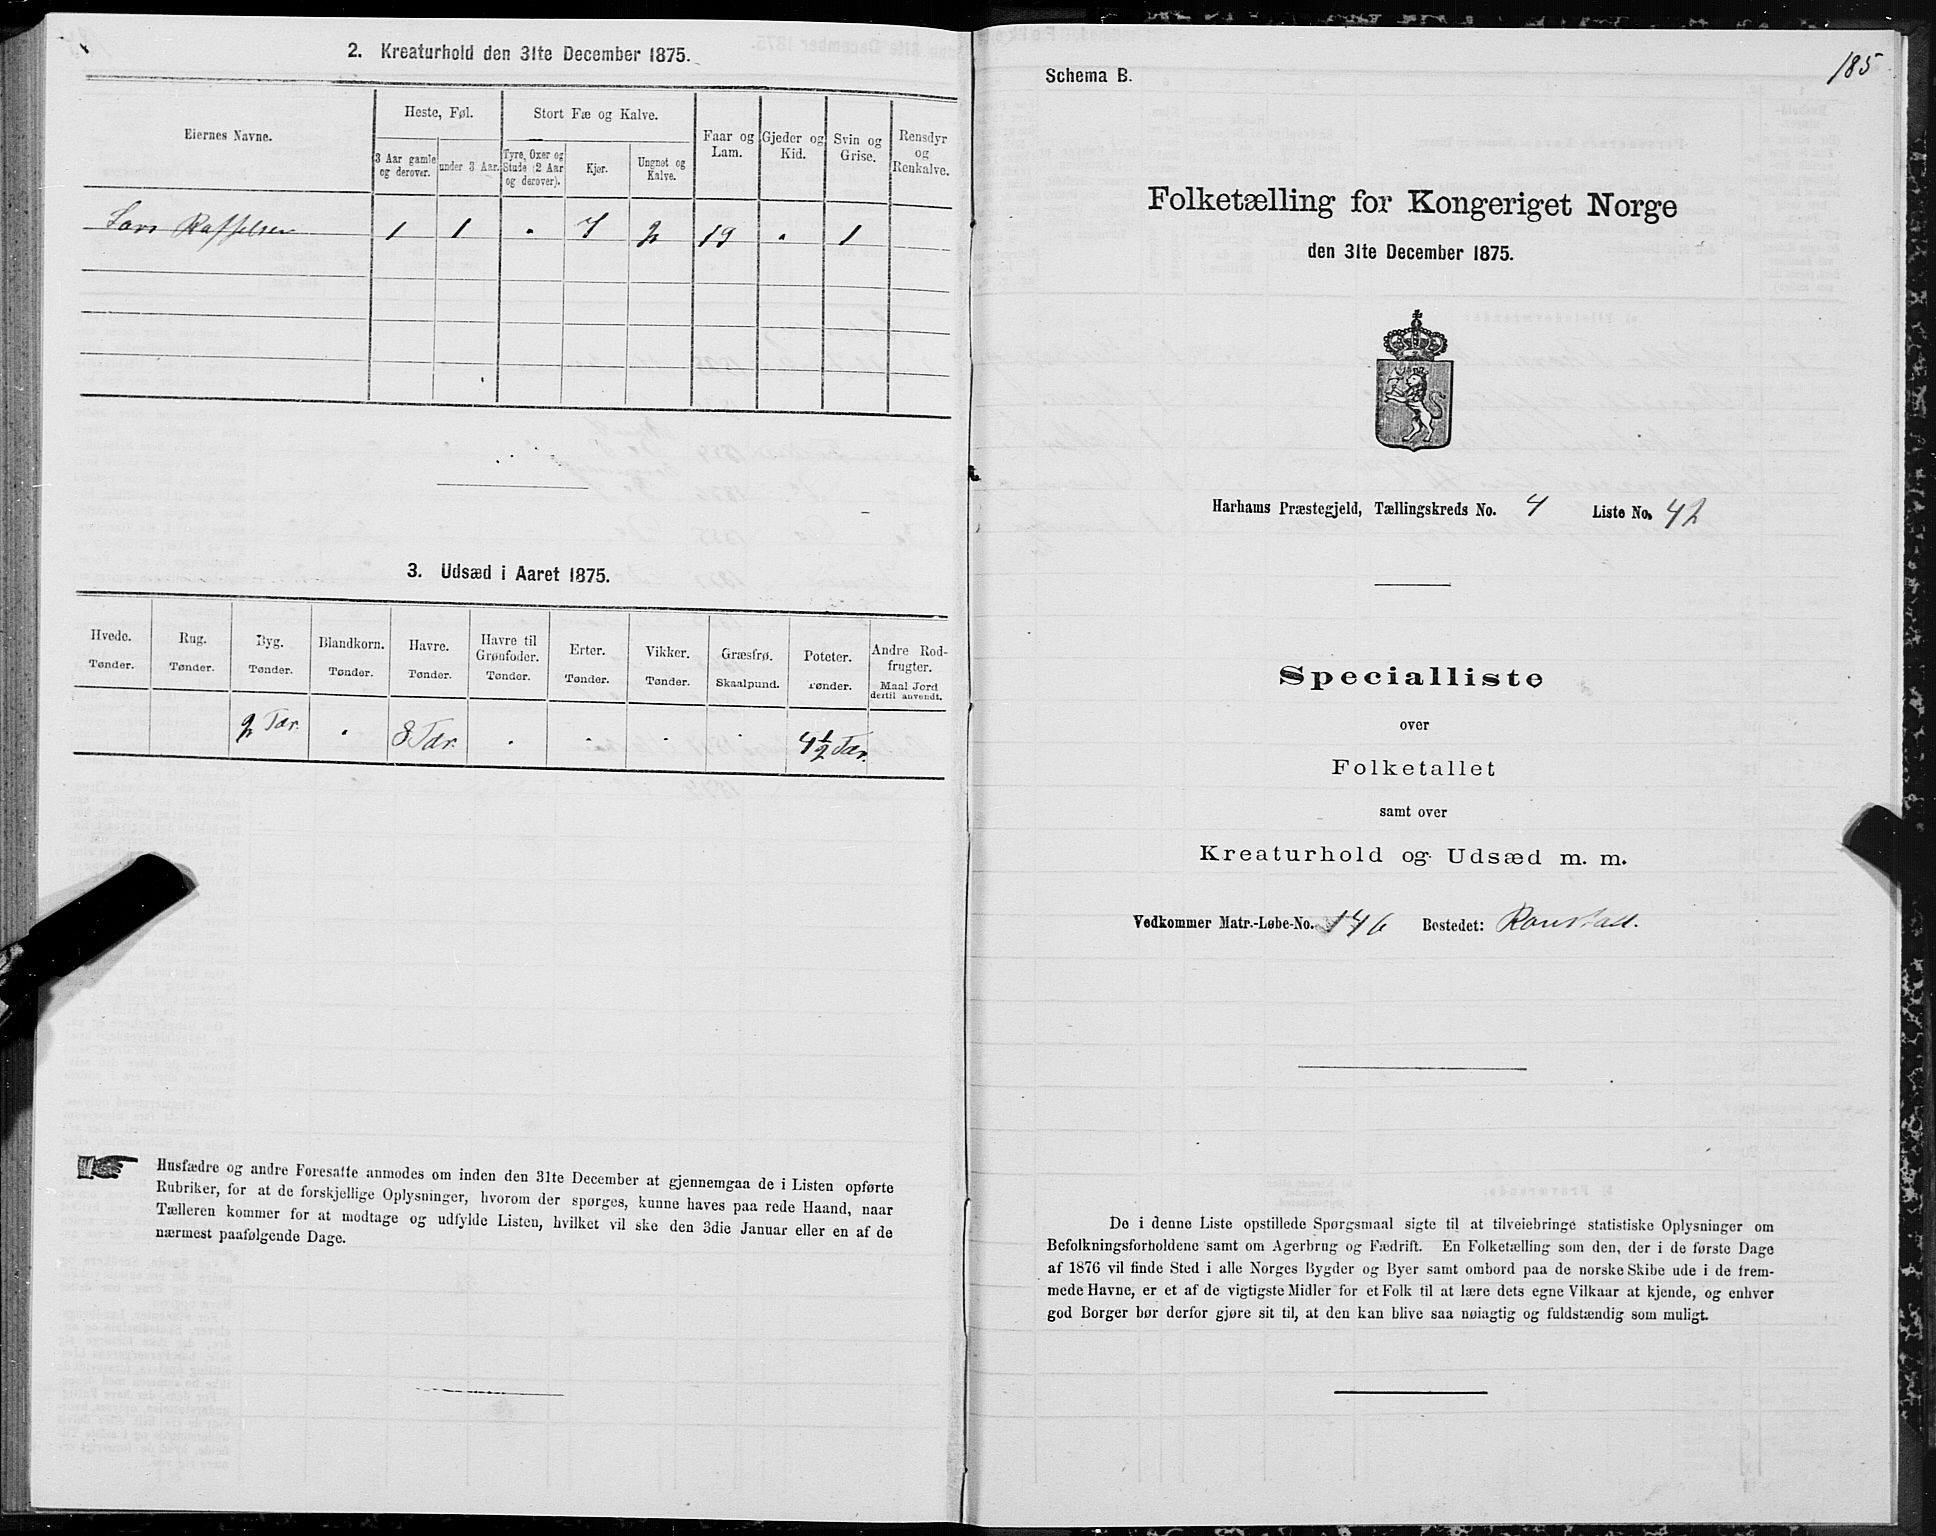 2. Kreaturhold den 31te December 1875.
Eiernes Navne.
Heste, Føl.
Stort Fæ og Kalve.
Faar og Lam.
Gjeder og Kid.
Svin og Grise.
Rensdyr og Renkalve.
3 Aar gamle og derover.
under 3 Aar.
Tyre, Oxer og Stude (2 Aar og derover).
Kjør.
Ungnøt og Kalve.
Lars 1 1 . 7 2 19 . 1
3. Udsæd i Aaret 1875.
Hvede. Rug. Byg. Blandkorn. Havre. Havre til Grønfoder. Erter. Vikker. Græsfrø. Poteter. Andre Rodfrugter.
Tønder. Tønder. Tønder. Tønder. Tønder. Tønder. Tønder. Tønder. Skaalpund. Tønder. Maal Jord dertil anvendt.
2 Tdr. . 8 Tdr. . . . . 4 1/2 Tdr.
Husfædre og andre Foresatte anmodes om inden den 31te December at gjennemgaa de i Listen opførte
Rubriker, for at de forskjellige Oplysninger, hvorom der spørges, kunne haves paa rede Haand, naar
Tælleren kommer for at modtage og udfylde Listen, hvilket vil ske den 3die Januar eller en af de
nærmest paafølgende Dage.
185
Schema B.
Folketælling for Kongeriget Norge
den 31te December 1875.
Harhams Præstegjeld, Tællingskreds No. 4 Liste No. 42
Specialliste
over
Folketallet
samt over
Kreaturhold og Udsæd m. m.
Vedkommer Matr.-Løbe-No. 146 Bostedet: Ronstad.
De i denne Liste opstillede Spørgsmaal sigte til at tilveiebringe statistiske Oplysninger om
Befolkningsforholdene samt om Agerbrug og Fædrift. En Folketælling som den, der i de første Dage
af 1876 vil finde Sted i alle Norges Bygder og Byer samt ombord paa de norske Skibe ude i de frem-
mede Havne, er et af de vigtigste Midler for et Folk til at lære dets egne Vilkaar at kjende, og enhver
god Borger bør derfor gjøre sit til, at den kan blive saa nøiagtig og fuldstændig som muligt.